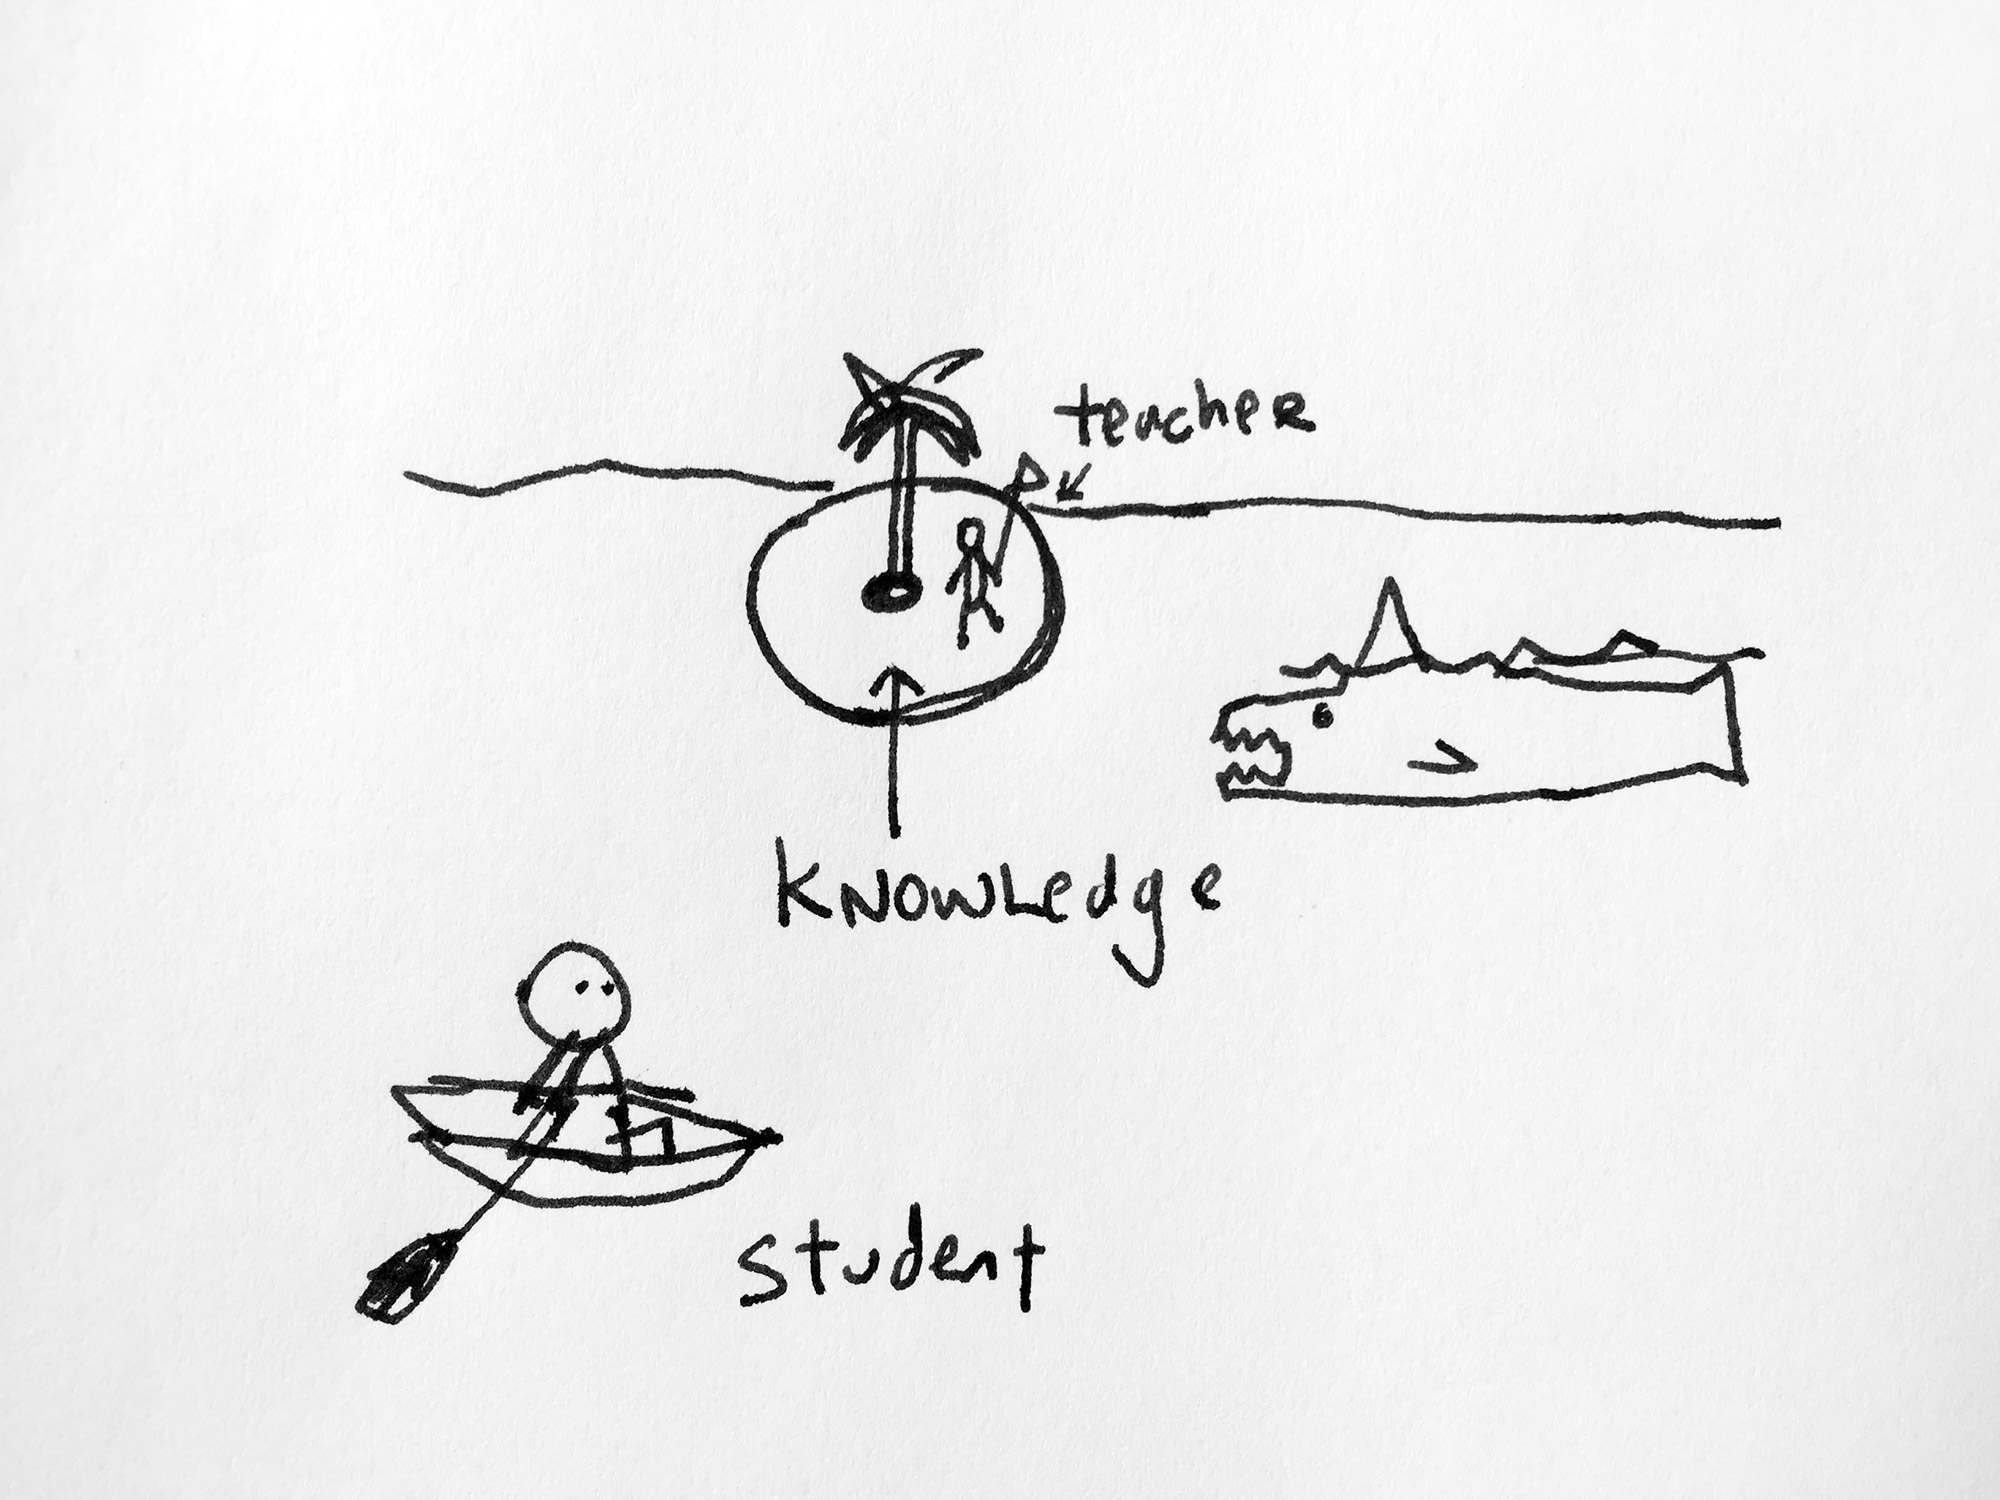 teacher
Knowledge
student